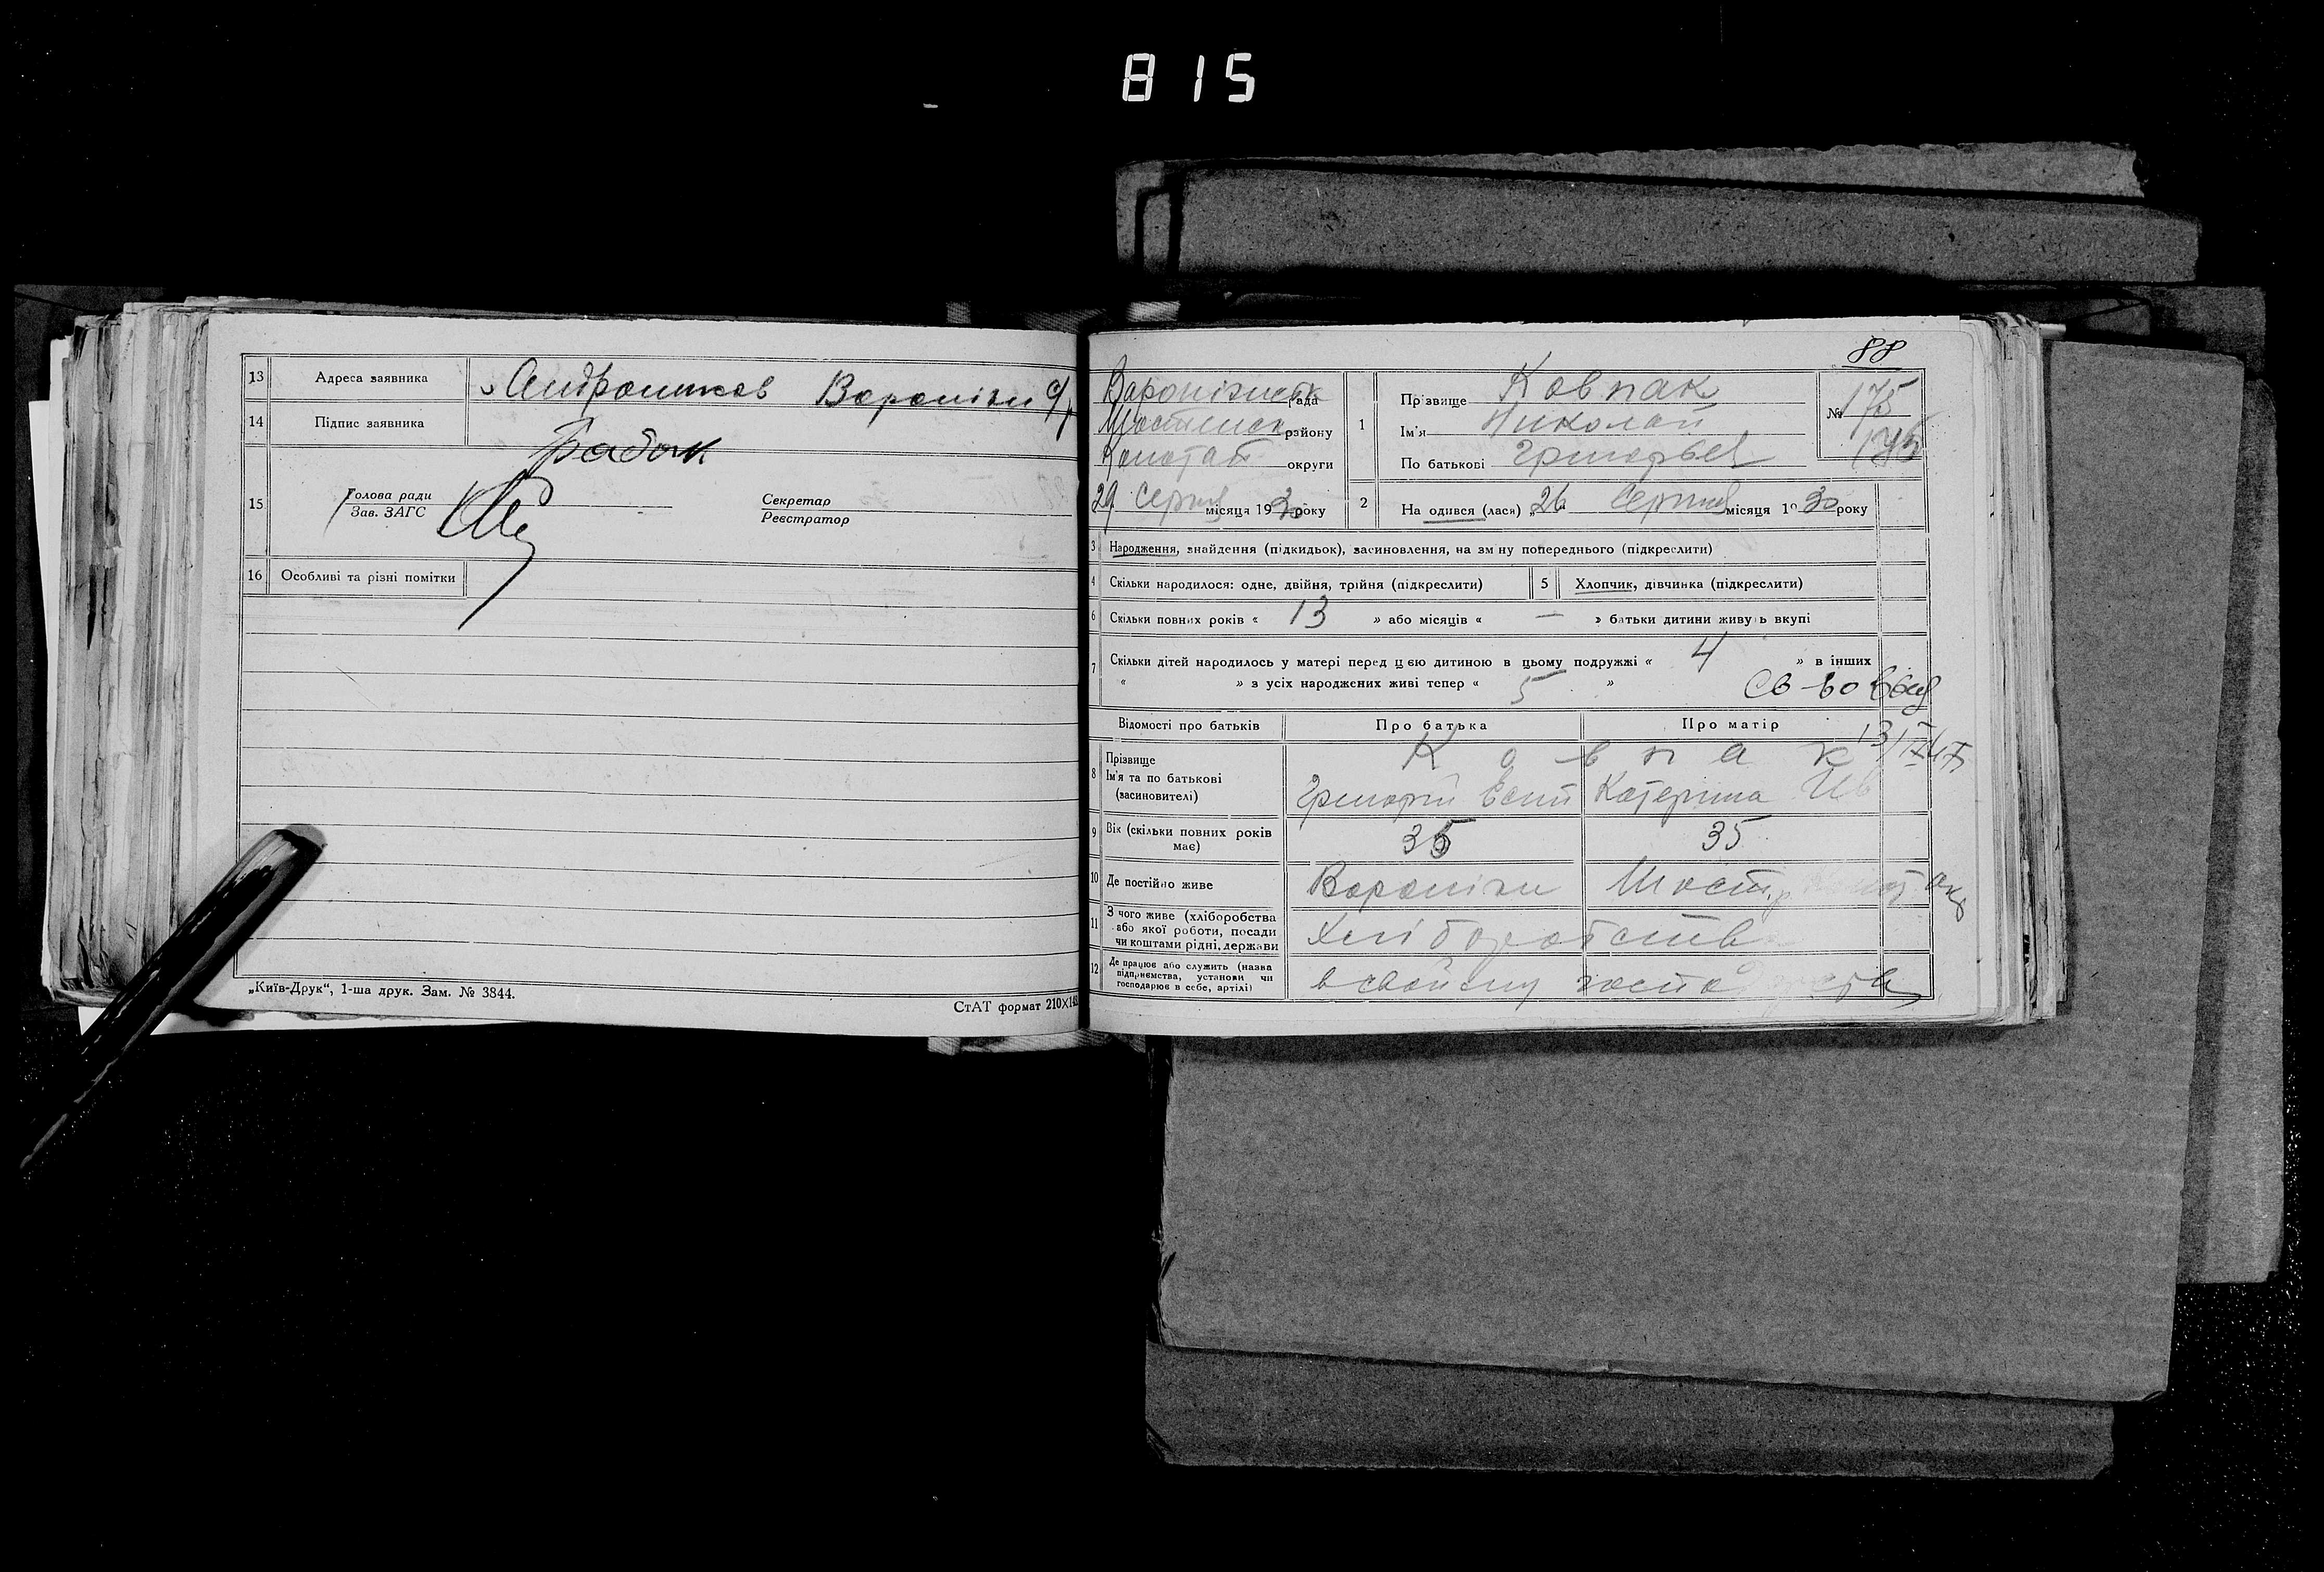 815
13 Адреса заявника Андрошков Вороніжи
14 Підпис заявника
15 Голова ради
Зав. ЗАГС
Секретар
Реєстратор
16 Особливі та різні помітки
„Київ-Друк“, 1-ша друк. Зам. № 3844.
СтАТ формат 210×148
88
рада
району
округи
29 серпня місяця 1930 року
1 Прізвище Ковпак
Ім'я Николай
По батькові
№ 175
2 Народився (лася) „26 серпня місяця 1930 року
3 Народження, знайдення (підкидьок), засиновлення, на зміну попереднього (підкреслити)
4 Скільки народилося: одне, двійня, трійня (підкреслити)
5 Хлопчик, дівчинка (підкреслити)
6 Скільки повних років « 13 » або місяців « — » батьки дитини живуть вкупі
7 Скільки дітей народилось у матері перед цією дитиною в цьому подружжі « 4 » в інших
« » з усіх народжених живі тепер « 5 »
Св-во
Відомості про батьків Про батька Про матір
8 Прізвище Ковпак
Ім'я та по батькові
(засиновителі)
Григорій Катерина Ив
9 Вік (скільки повних років має) 35 35
10 Де постійно живе Вороніжи Шост.р
11 З чого живе (хліборобства
або якої роботи, посади
чи коштами рідні, держави
Хліборобств
12 Де працює або служить (назва
підприємства, установи чи
господарює в себе, артілі)
в свойому госпо